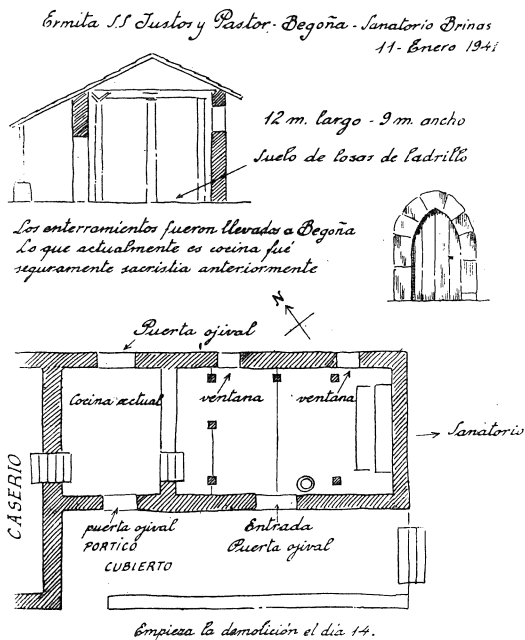 Ermita S.S Justos y Pastor.- Begoña - Sanatorio Brinas
11- Enero 1941
12 m. largo - 9 m. ancho
Suelo de losas de ladrillo
Los enterramientos fueron llevados a Begoña
Lo que actualmente es cocina fué
seguramente sacristia anteriormente
N
Puerta ojival
Cocina actual
ventana
ventana
Sanatorio
CASERIO
puerta ojival
PORTICO
CUBIERTO
Entrada
Puerta ojival
Empieza la demolición el dia 14.